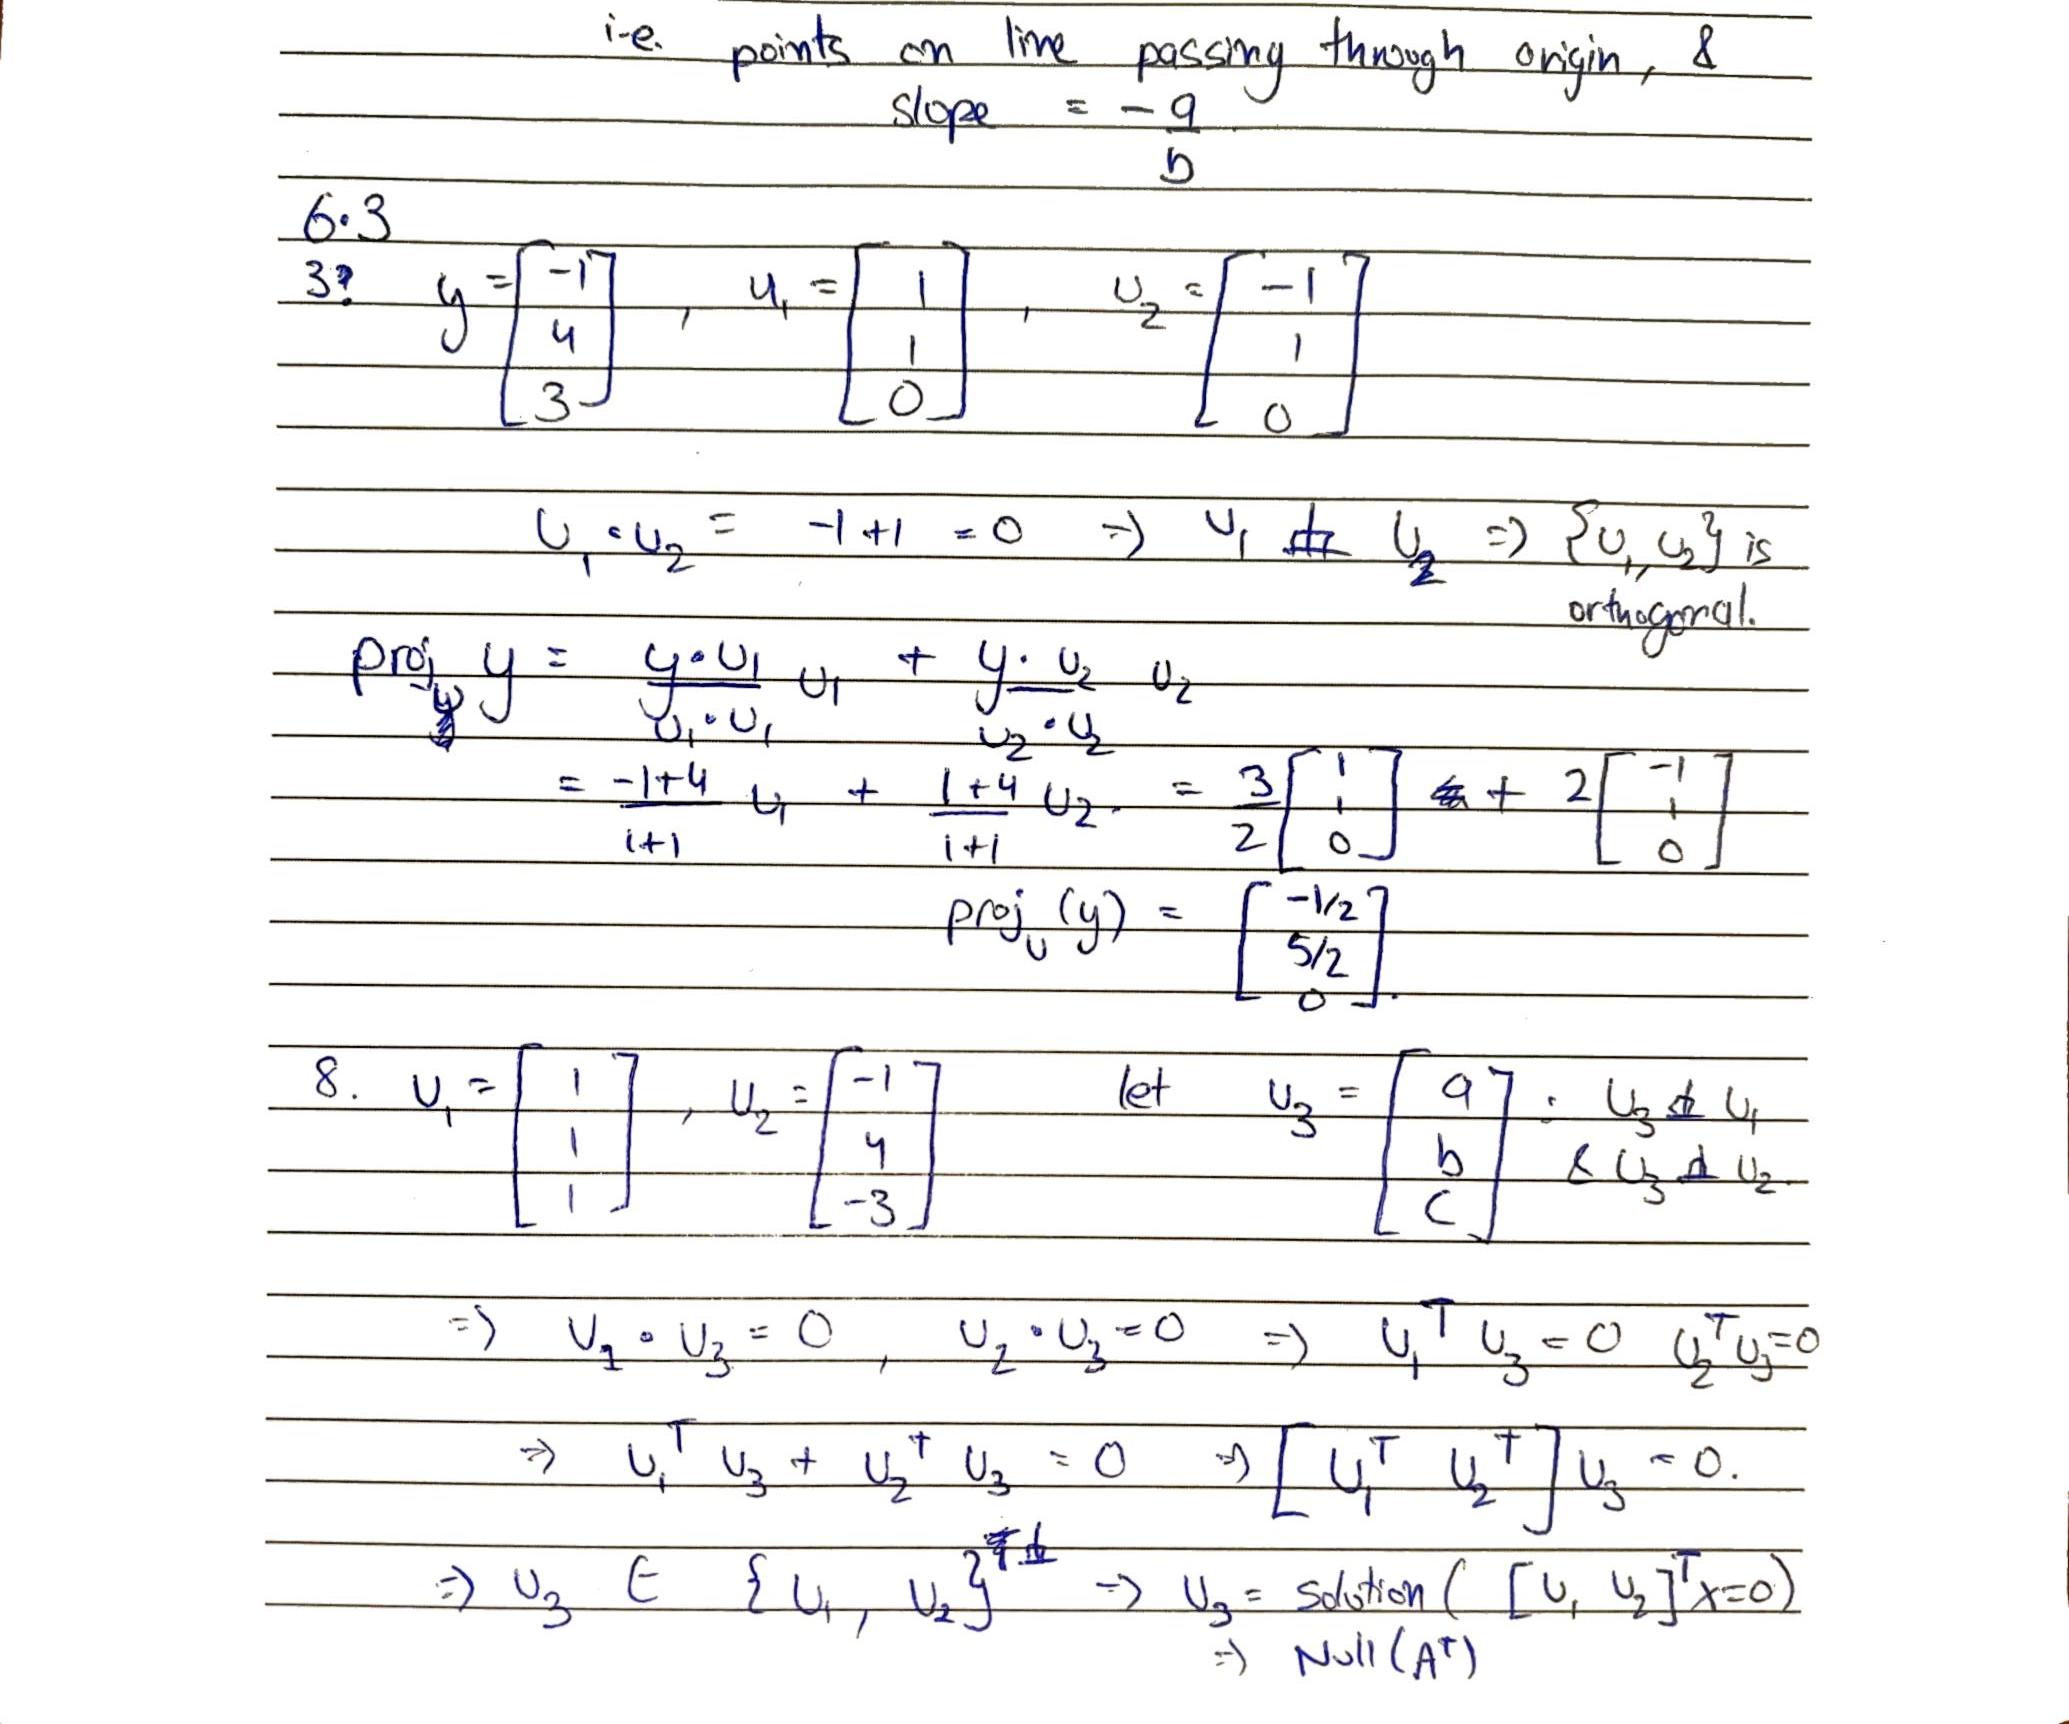 i.e. points on line passing through origin, &
slope = -a/b
6.3
3. y = [-1 4 3], u₁ = [1 1 0], u₂ = [-1 1 0]
u₁ • u₂ = -1+1 = 0 => u₁ ⊥ u₂ => {u₁, u₂} is
orthogonal.
proj y = (y•u₁)/(u₁•u₁) u₁ + (y•u₂)/(u₂•u₂) u₂
= (-1+4)/(1+1) u₁ + (1+4)/(1+1) u₂. = 3/2 [1 1 0] + 2 [-1 1 0]
proj_u (y) = [-1/2 5/2 0].
8. u₁ = [1 1 1], u₂ = [-1 4 -3] let u₃ = [a b c] : u₃ ⊥ u₁
& u₃ ⊥ u₂.
=> u₁ • u₃ = 0, u₂ • u₃ = 0 => u₁ᵀ u₃ = 0 u₂ᵀ u₃ = 0
=> u₁ᵀ u₃ + u₂ᵀ u₃ = 0 => [u₁ᵀ u₂ᵀ] u₃ = 0.
=> u₃ ∈ {u₁, u₂}^⊥ => u₃ = solution ( [u₁ u₂]ᵀ x=0)
=> Null (Aᵀ)